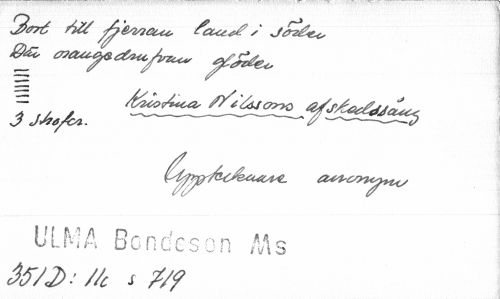 Bort till fjerran land i söder
Där orangedrufvan glöder
Kristina Nilssons afskedssång
3 strofer.
Upptecknare anonym
ULMA Bondeson Ms
351 D: 11c s 719